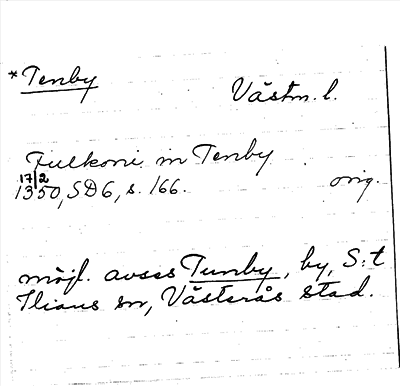 *Tenby
Västm. l.
Fulkoni in Tenby
17/2
1350, SD 6, s. 166. orig.
möjl. avses Tunby, by, S:t
Ilians sn, Västerås stad.